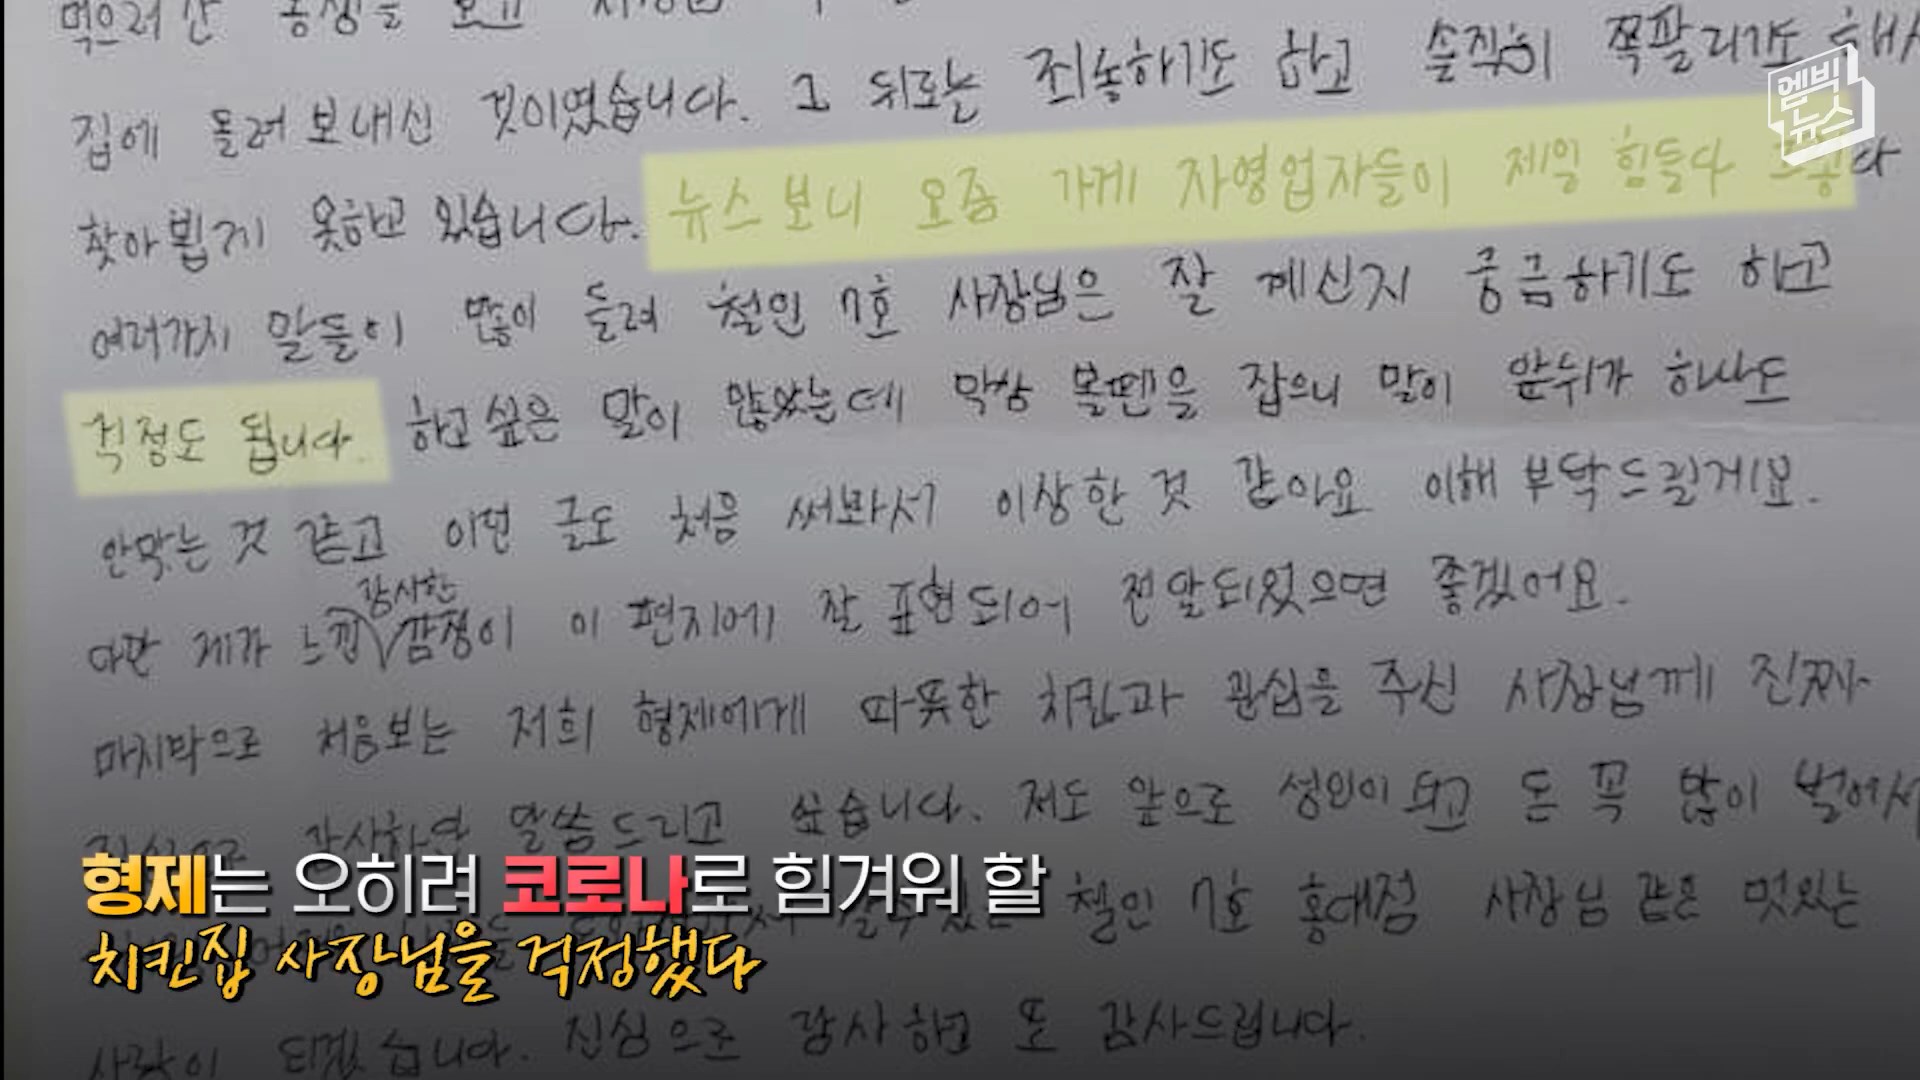 먹으러 간 동생을 보고
집에 돌려보내신 것이였습니다. 그 뒤로는 죄송하기도 하고 솔직히 쪽팔리기도 해서
엠빅
뉴스
찾아뵙게 못하고 있습니다. 뉴스보니 요즘 가게 자영업자들이 제일 힘들다
여러가지 말들이 많이 들려 철인 7호 사장님은 잘 계신지 궁금하기도 하고
걱정도 됩니다. 하고싶은 말이 많았는데 막상 볼펜을 잡으니 말이 앞뒤가 하나도
안맞는 것 같고 이런 글도 처음 써봐서 이상한 것 같아요 이해 부탁드릴게요.
다만 제가 느낀 감사한 감정이 이 편지에 잘 표현되어 전달되었으면 좋겠어요.
마지막으로 처음보는 저희 형제에게 따뜻한 치킨과 관심을 주신 사장님께 진짜
감사하단 말씀드리고 싶습니다. 저도 앞으로 성인이 되고 돈 꼭 많이 벌어서
철인 7호 홍대점 사장님 같은 멋있는
사람이 되겠습니다. 진심으로 감사하고 또 감사드립니다.
형제는 오히려 코로나로 힘겨워 할
치킨집 사장님을 걱정했다